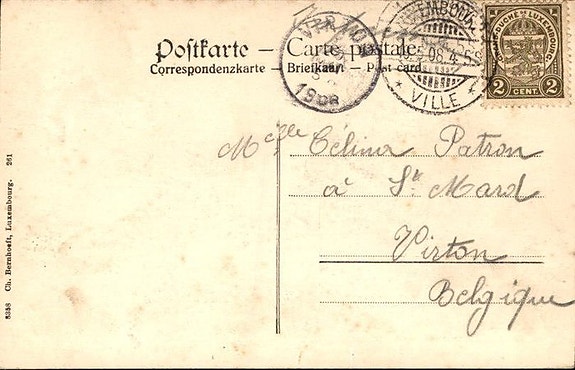 Postkarte — Carte postale
Correspondenzkarte — Briefkaart — Post card
VIRTON
1908
LUXEMBOURG
VILLE
GRAND-DUCHÉ DE LUXEMBOURG
2 CENT. 2
Mcelle Célina Patron
à St Mard
Virton
Belgique
8358 Ch. Bernhoeft, Luxembourg. 261